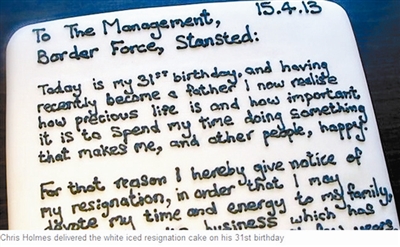 15.4.13
To The Management,
Border Force, Stansted:
Today is my 31ST birthday, and having
recently become a father I now realise
how precious life is and how important
it is to spend my time doing something
that makes me, and other people, happy.
For that reason I hereby give notice of
my resignation, in order that I may
devote my time and energy to my family,
business which has
Chris Holmes delivered the white iced resignation cake on his 31st birthday